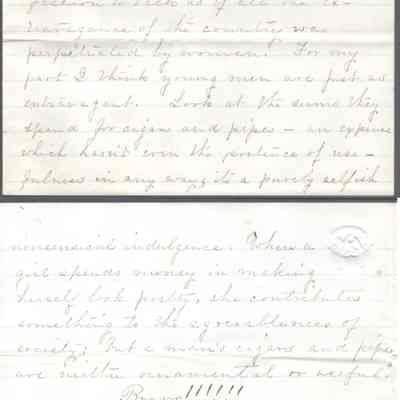 position to talk as if all the ex-
travagance of the country was
perpetrated by women. For my
part I think young men are just as
extravagant. Look at the sums they
spend for cigars and pipes – an expense
which hasn't even the pretence of use-
fulness in any way; its a purely selfish
nonsensical indulgence. When a
girl spends money in making
herself look pretty, she contributes
something to the agreeableness of
society; but a man's cigars and pipes
are neither ornamental or useful.
Bravo!!!!!!